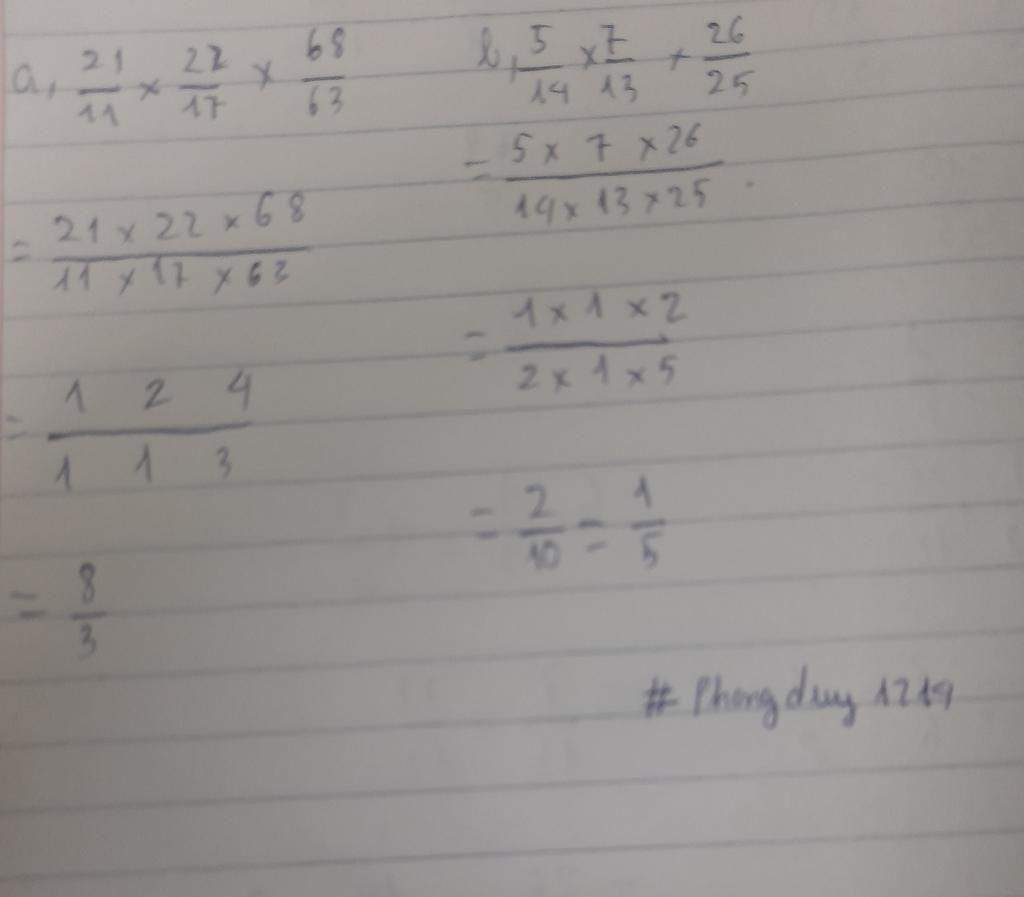 a, 21/11 × 22/17 × 68/63
= 21 × 22 × 68 / 11 × 17 × 63
= 1 2 4 / 1 1 3
= 8/3
b, 5/14 × 7/13 × 26/25
= 5 × 7 × 26 / 14 × 13 × 25 .
= 1 × 1 × 2 / 2 × 1 × 5
= 2/10 = 1/5
# Phongduy 1219